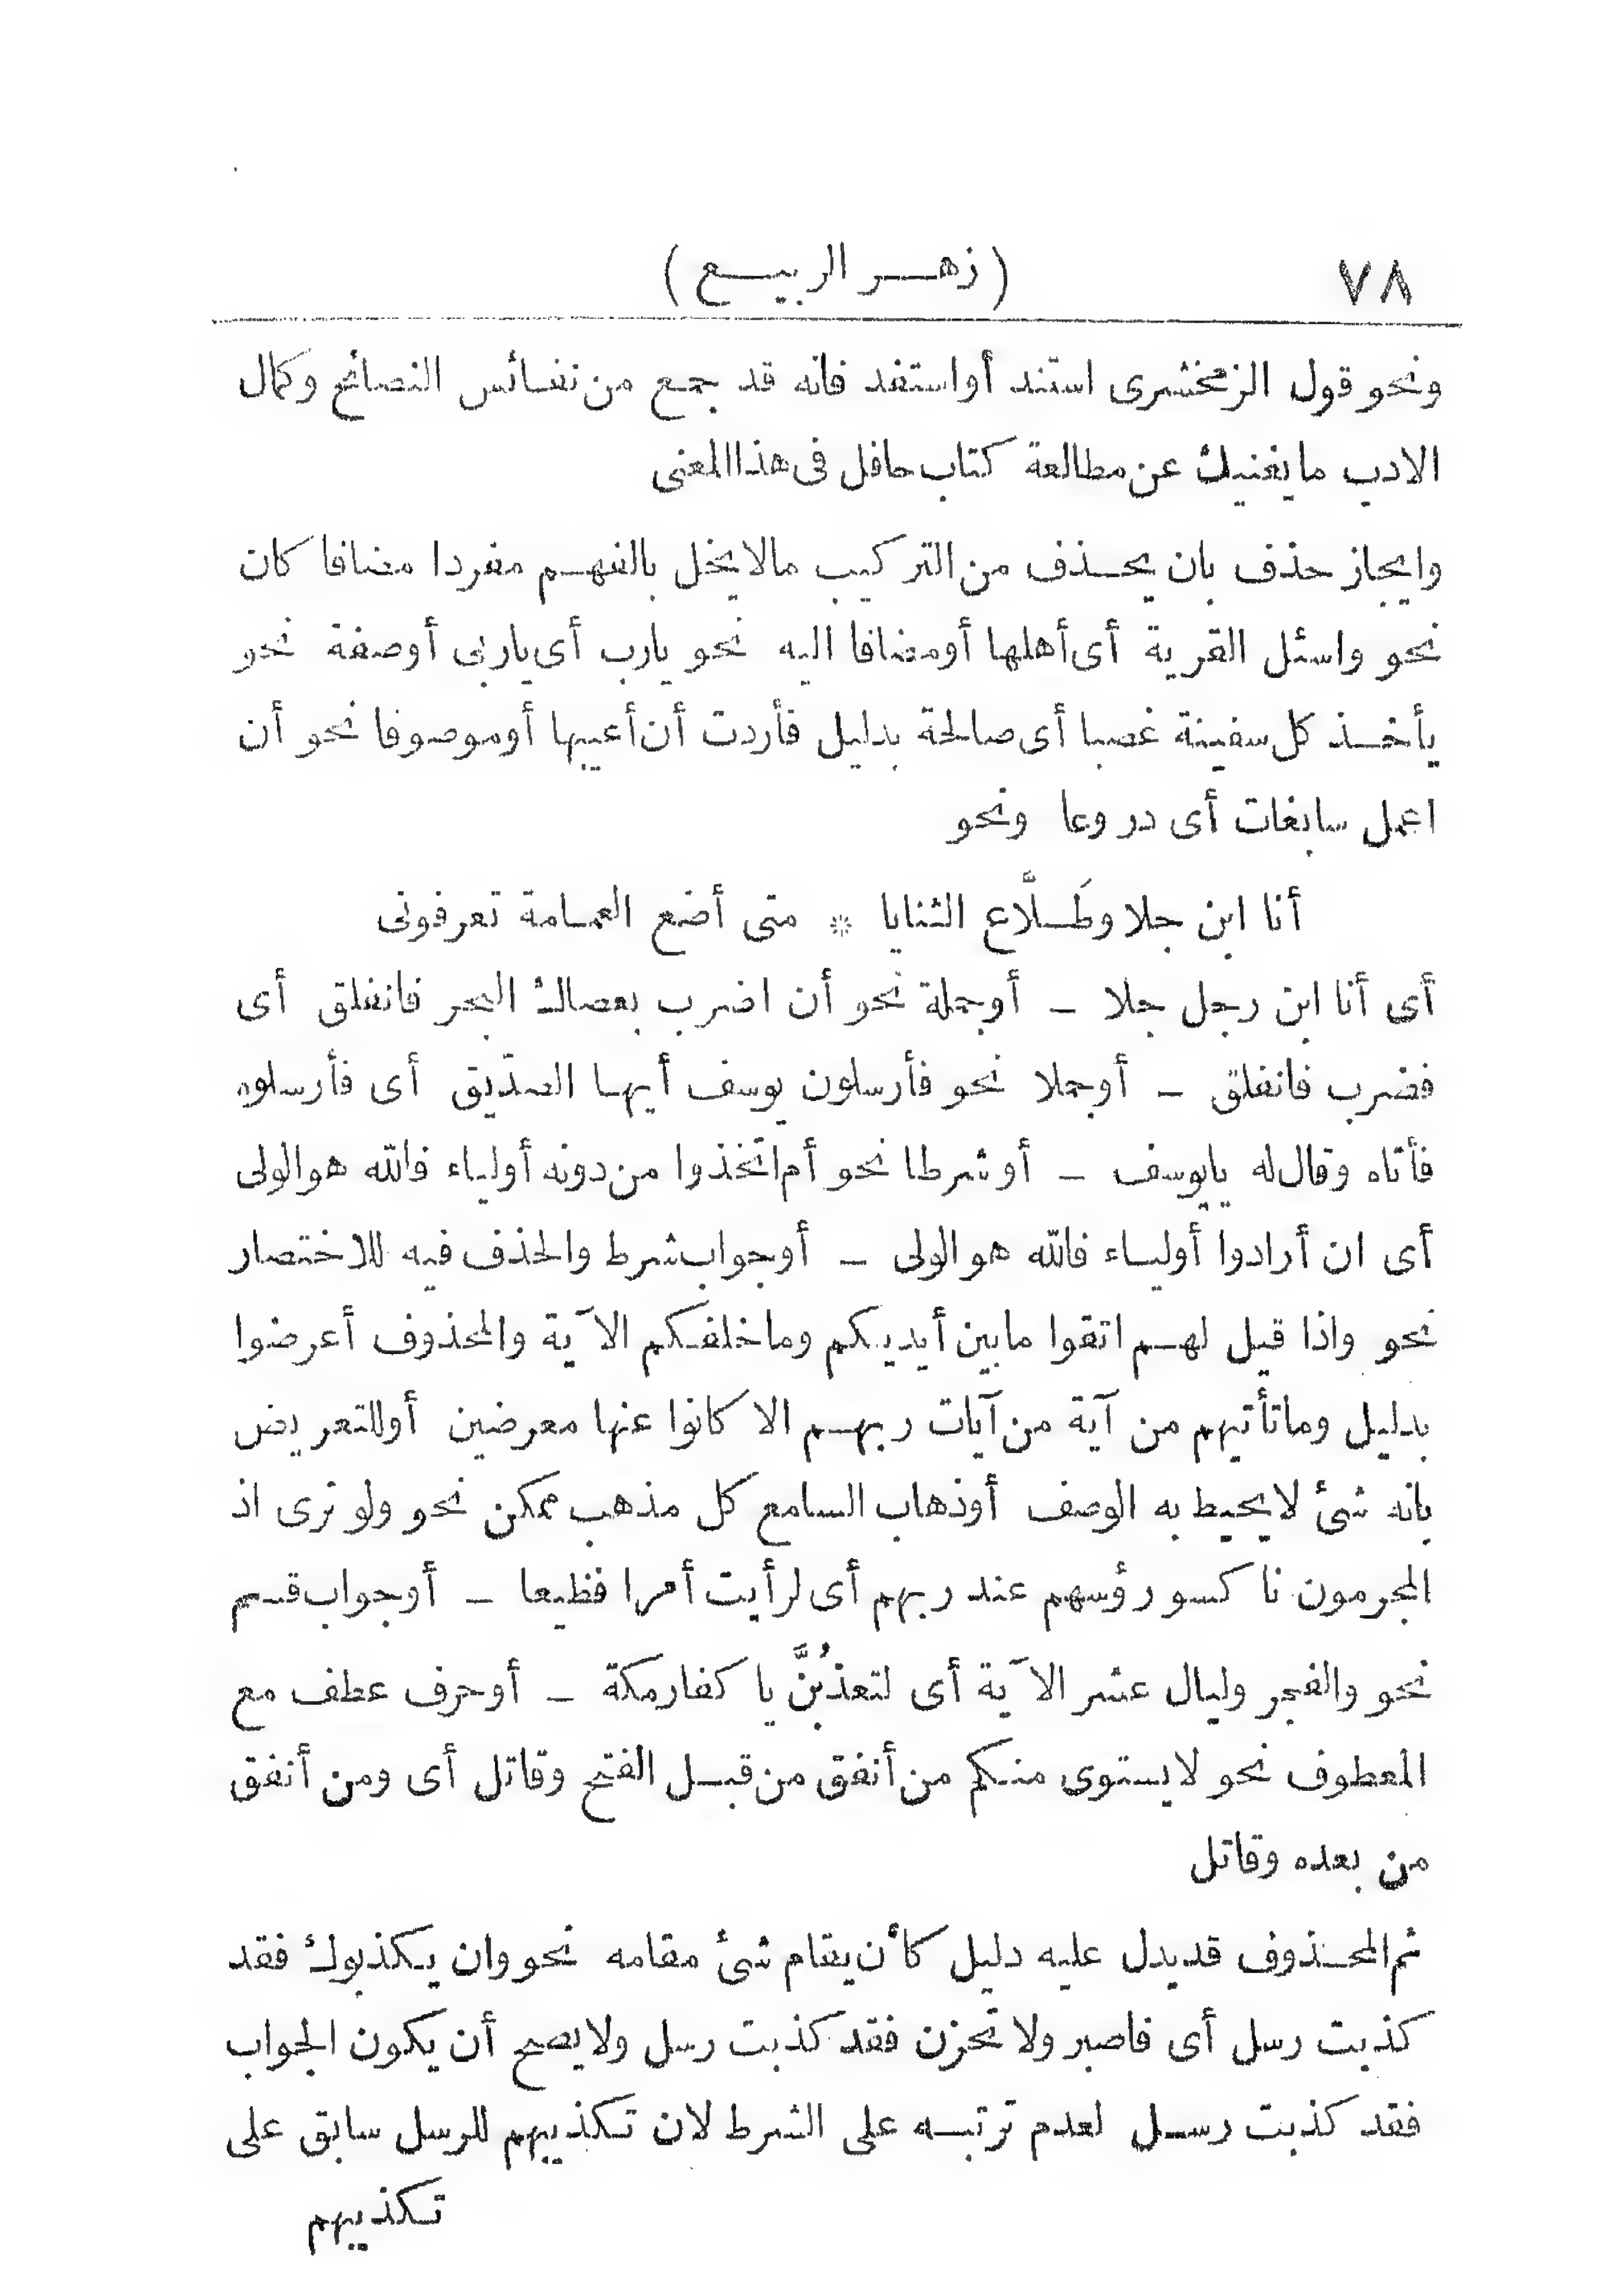 ٧٨
(زهر الربيع)
ونحو قول الزمخشرى استند أو استفد فانه قد جمع من نفائس النصائح وكمال
الادب ما يغنيك عن مطالعة كتاب حافل فى هذا المعنى
وايجاز حذف بان يحذف من التركيب مالا يخل بالفهم مفردا مضافا كان
نحو واسئل القرية أى أهلها أو مضافا اليه نحو يارب أى ياربى أو صفة نحو
يأخذ كل سفينة غصبا أى صالحة بدليل فأردت أن أعيبها أو موصوفا نحو أن
اعمل سابغات أى دروعا ونحو
أنا ابن جلا وطَلَّاع الثنايا * متى أضع العمامة تعرفونى
أى أنا ابن رجل جلا – أو جملة نحو أن اضرب بعصاك البحر فانفلق أى
فضرب فانفلق – أو جملا نحو فأرسلون يوسف أيها الصدّيق أى فأرسلوه
فأتاه وقال له يايوسف – أو شرطا نحو أم اتخذوا من دونه أولياء فالله هو الولى
أى ان أرادوا أولياء فالله هو الولى – أو جواب شرط والحذف فيه للاختصار
نحو واذا قيل لهم اتقوا مابين أيديكم وما خلفكم الآية والمحذوف أعرضوا
بدليل وما تأتيهم من آية من آيات ربهم الا كانوا عنها معرضين أو للتعريض
بانه شئ لا يحيط به الوصف أو ذهاب السامع كل مذهب ممكن نحو ولو ترى اذ
المجرمون ناكسو رؤسهم عند ربهم أى لرأيت أمرا فظيعا – أو جواب قسم
نحو والفجر وليال عشر الآية أى لتعذبُنَّ يا كفار مكة – أو حرف عطف مع
المعطوف نحو لا يستوى منكم من أنفق من قبل الفتح وقاتل أى ومن أنفق
من بعده وقاتل
ثم المحذوف قد يدل عليه دليل كأن يقام شئ مقامه نحو وان يكذبوك فقد
كذبت رسل أى فاصبر ولا تحزن فقد كذبت رسل ولا يصح أن يكون الجواب
فقد كذبت رسل لعدم ترتبه على الشرط لان تكذيبهم للرسل سابق على
تكذيبهم